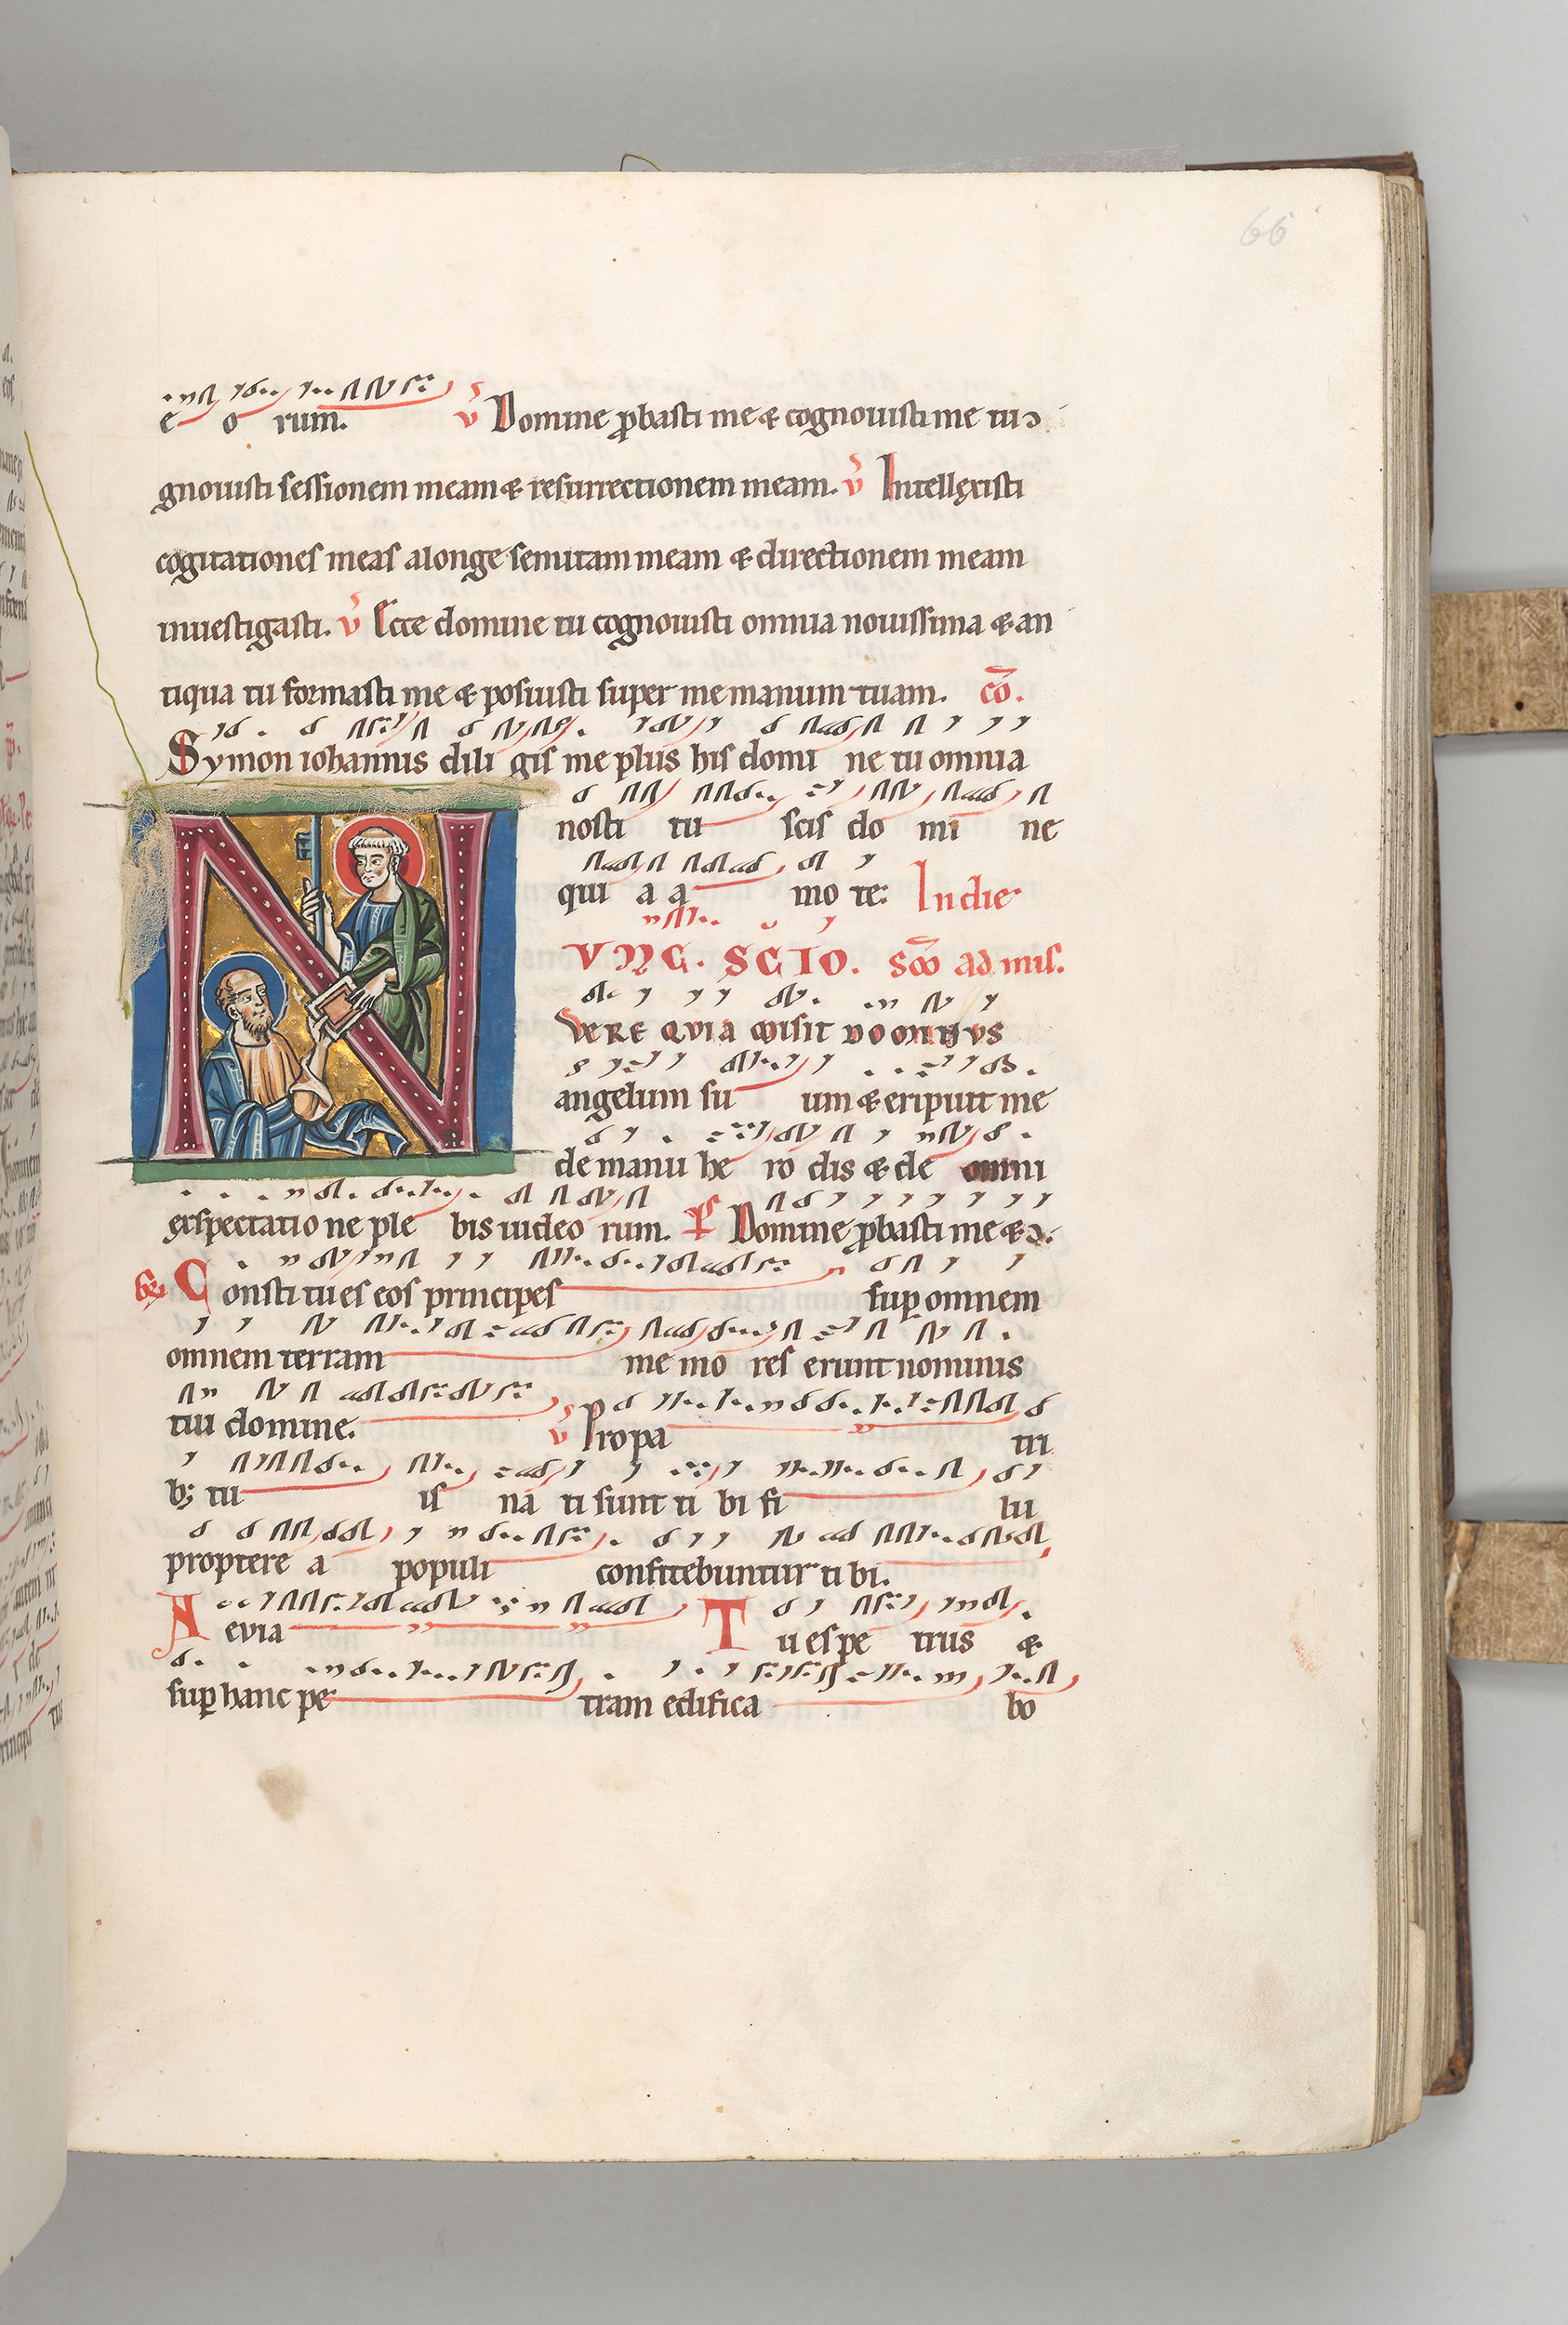 66
e o rum. v Domine ꝓbasti me & cognouisti me tu ↄ
gnouisti sessionem meam & resurrectionem meam. v Intellęxisti
cogitationes meas alonge semitam meam & directionem meam
inuestigasti. v Ecce domine tu cognouisti omnia nouissima & an
tiqua tu formasti me & posuisti super me manum tuam. cō.
Symon iohannis dili gis me plus his domi ne tu omnia
nosti tu scis do mi ne
qui a a mo te. In die
VNC. SC̄IO. Sc̄o ad mis.
N
VVERE QVIA Misit DOMINVS
angelum su um & eripuit me
de manu he ro dis & de omni
exspectatio ne ple bis iudeo rum. P̄s Domine ꝓbasti me & ↄ.
Constitues eos principes suꝑ omnem
omnem terram me mo res erunt nominis
tui domine. v Pro pa tri
b; tu is na ti sunt ti bi fi lii
proptere a populi confitebuntur ti bi.
A evia Tu es pe trus &
suꝑ hanc pe tram edifica bo